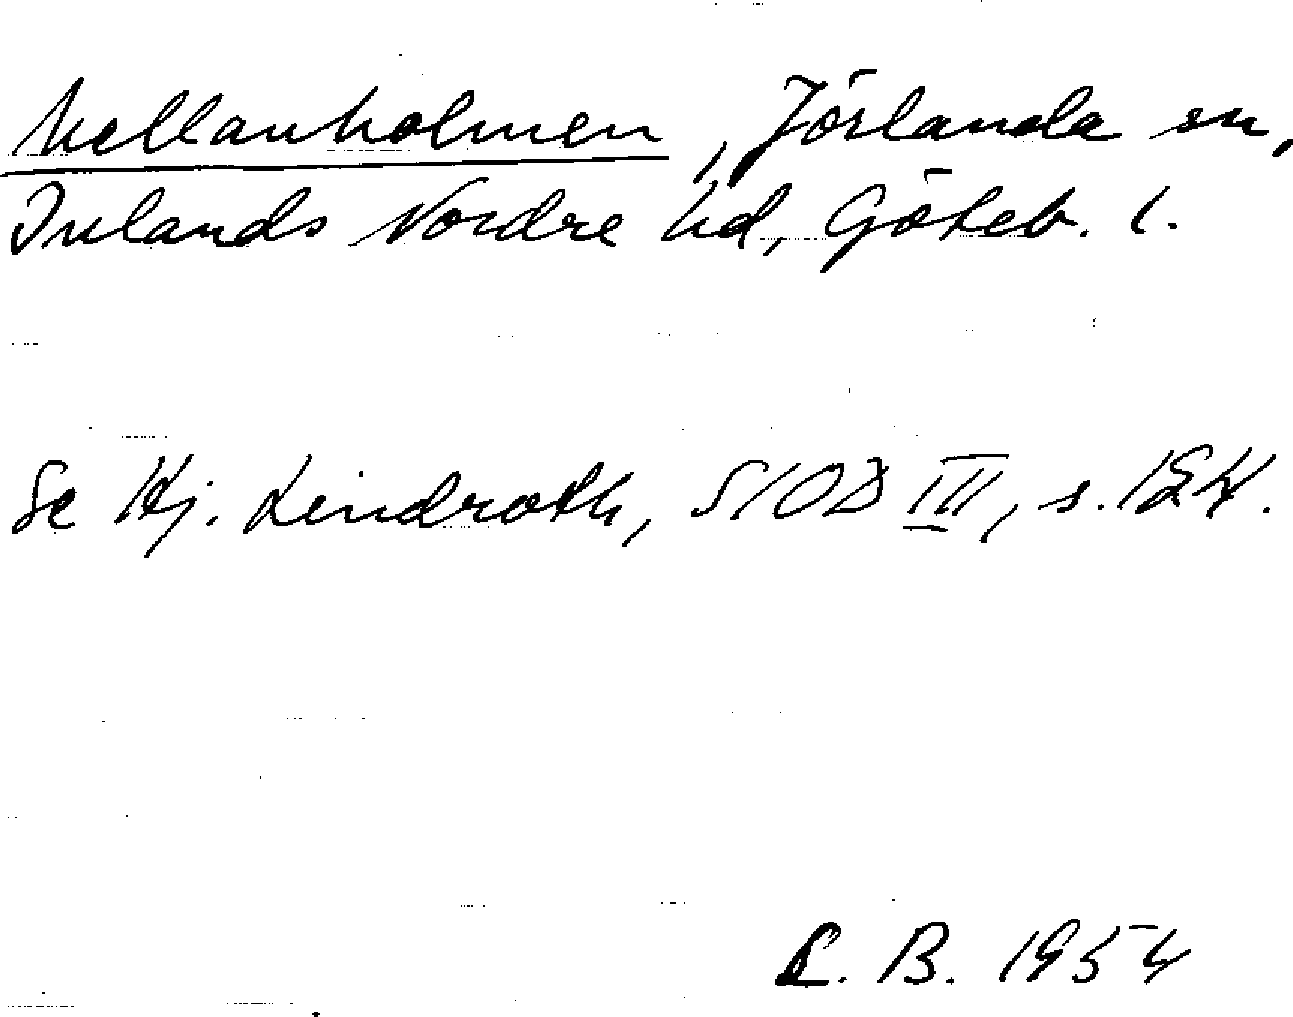 Mellanholmen, Jörlanda sn,
Inlands Nordre hd, Göteb. l.
Se Hj. Lindroth, SIOD III, s. 124.
R. B. 1954